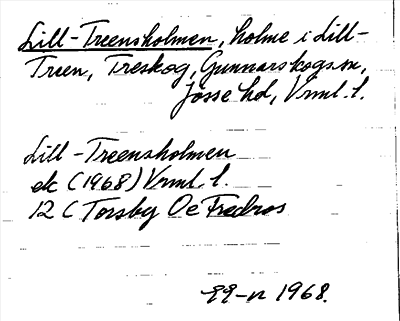 Lill-Treensholmen, holme i Lill-
Treen, Treskog, Gunnarskogs sn,
Jösse hd, Vrml. l.
Lill-Treensholmen
ek (1968) Vrml. l.
12 C Torsby Oe Fredros
1968.